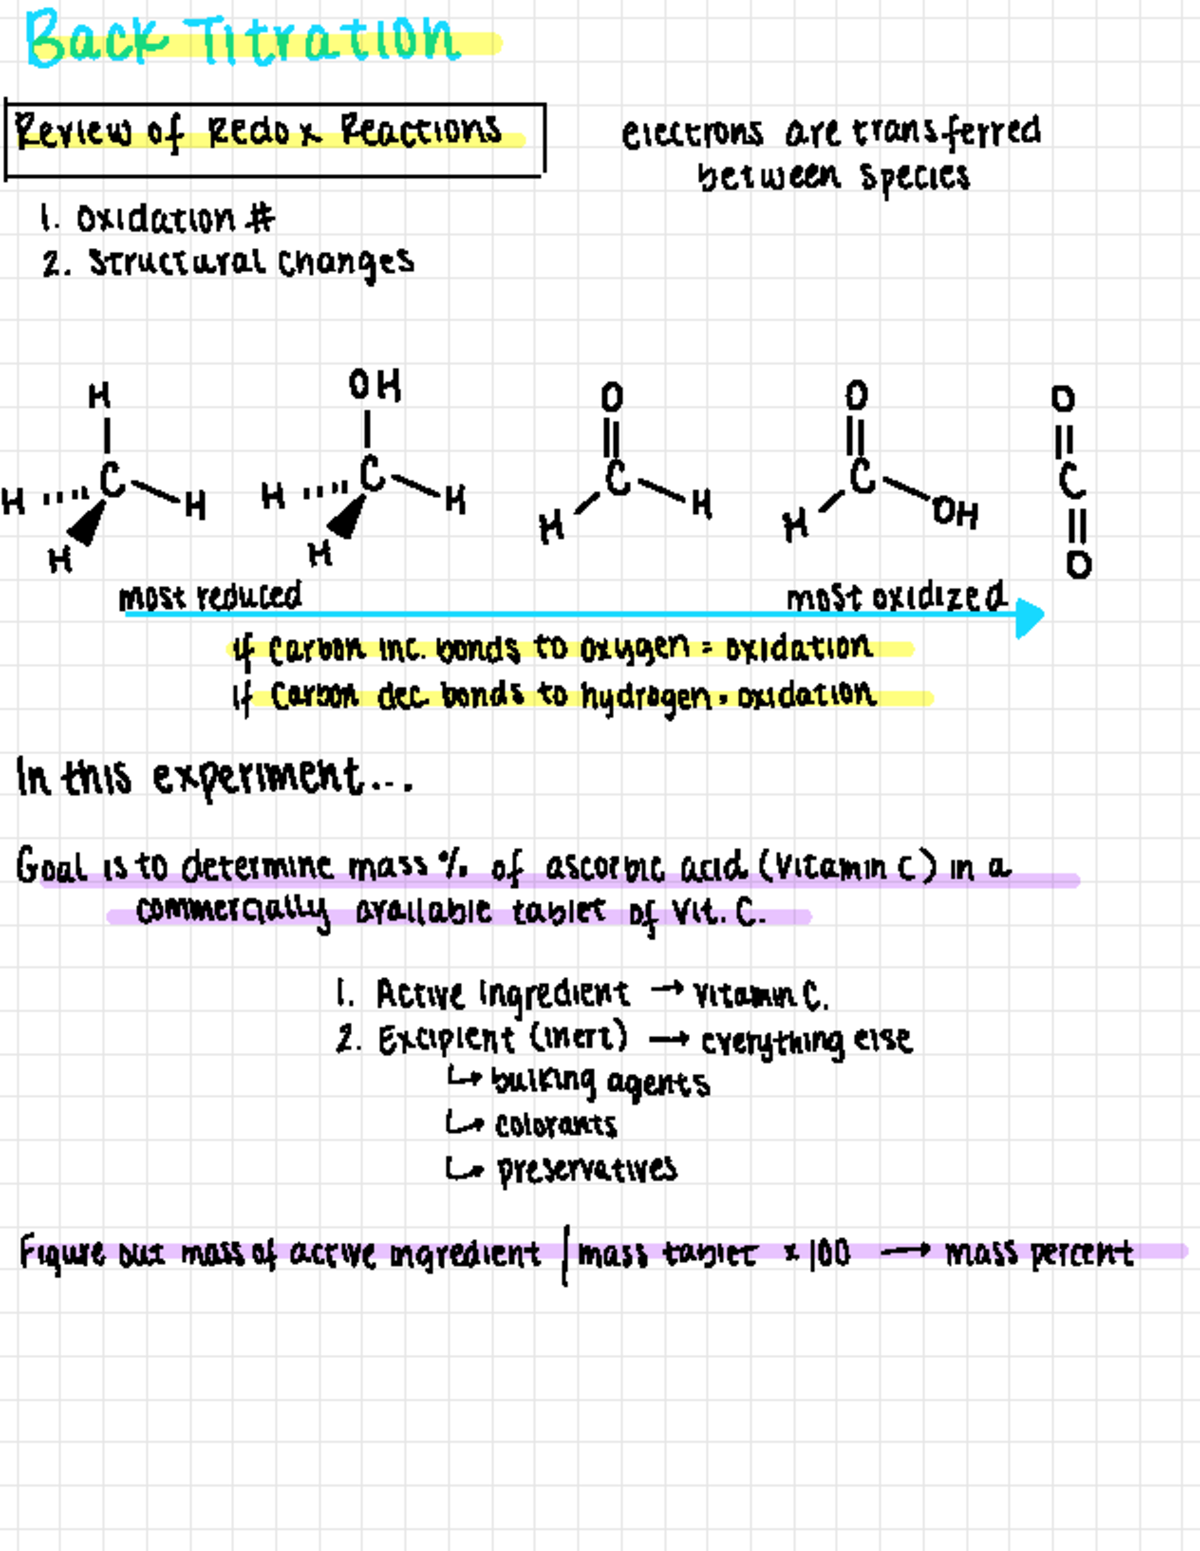 Back Titration
Review of Redox Reactions
electrons are transferred
between species
1. Oxidation #
2. Structural changes
H
H C H
H
OH
H C H
H
O
C
H H
O
C
H OH
O
C
O
most reduced
most oxidized
if carbon inc. bonds to oxygen = oxidation
if carbon dec. bonds to hydrogen = oxidation
In this experiment...
Goal is to determine mass % of ascorbic acid (Vitamin C) in a
commercially available tablet of Vit. C.
1. Active Ingredient → Vitamin C.
2. Excipient (inert) → everything else
↳ bulking agents
↳ colorants
↳ preservatives
Figure out mass of active ingredient / mass tablet x 100 → mass percent